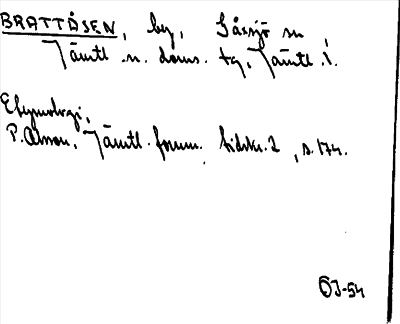 BRATTÅSEN, by, Gåxsjö sn,
Jämtl. n. doms. tg, Jämtl. l.
Etymologi,
P. Olsson, Jämtl. fornm. tidskr. 2, s. 174.
OJ-54